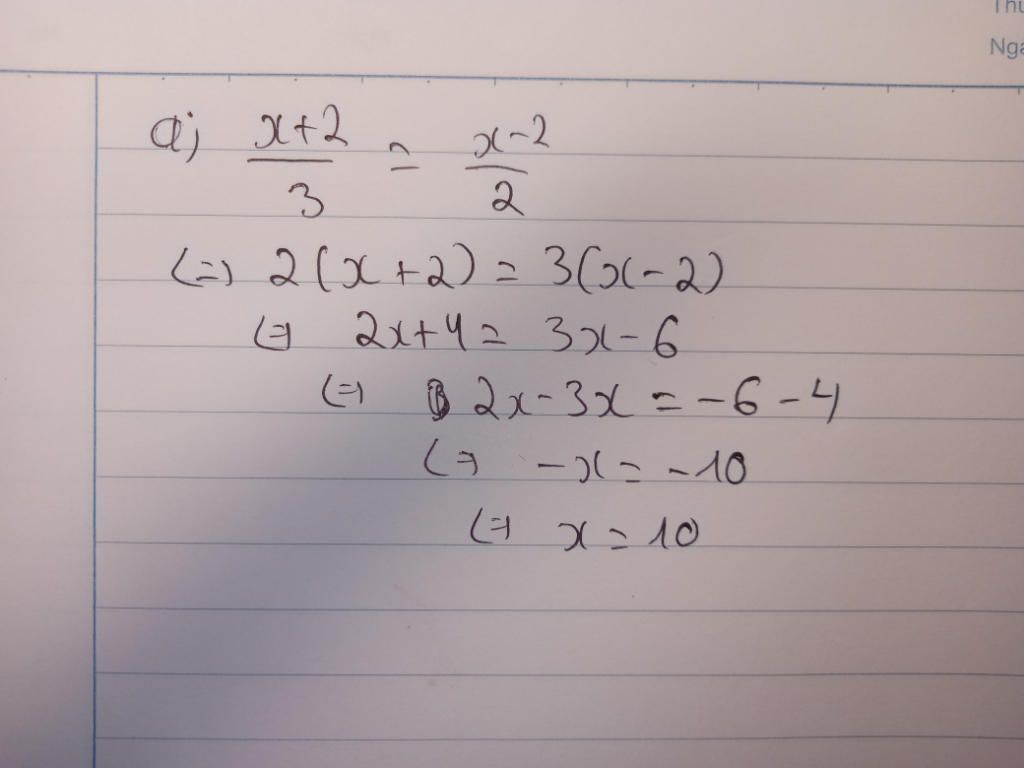 Thu
Nga
a) x+2/3 = x-2/2
(=) 2(x+2) = 3(x-2)
(=) 2x+4 = 3x-6
(=) 2x-3x = -6-4
(=) -x = -10
(=) x = 10